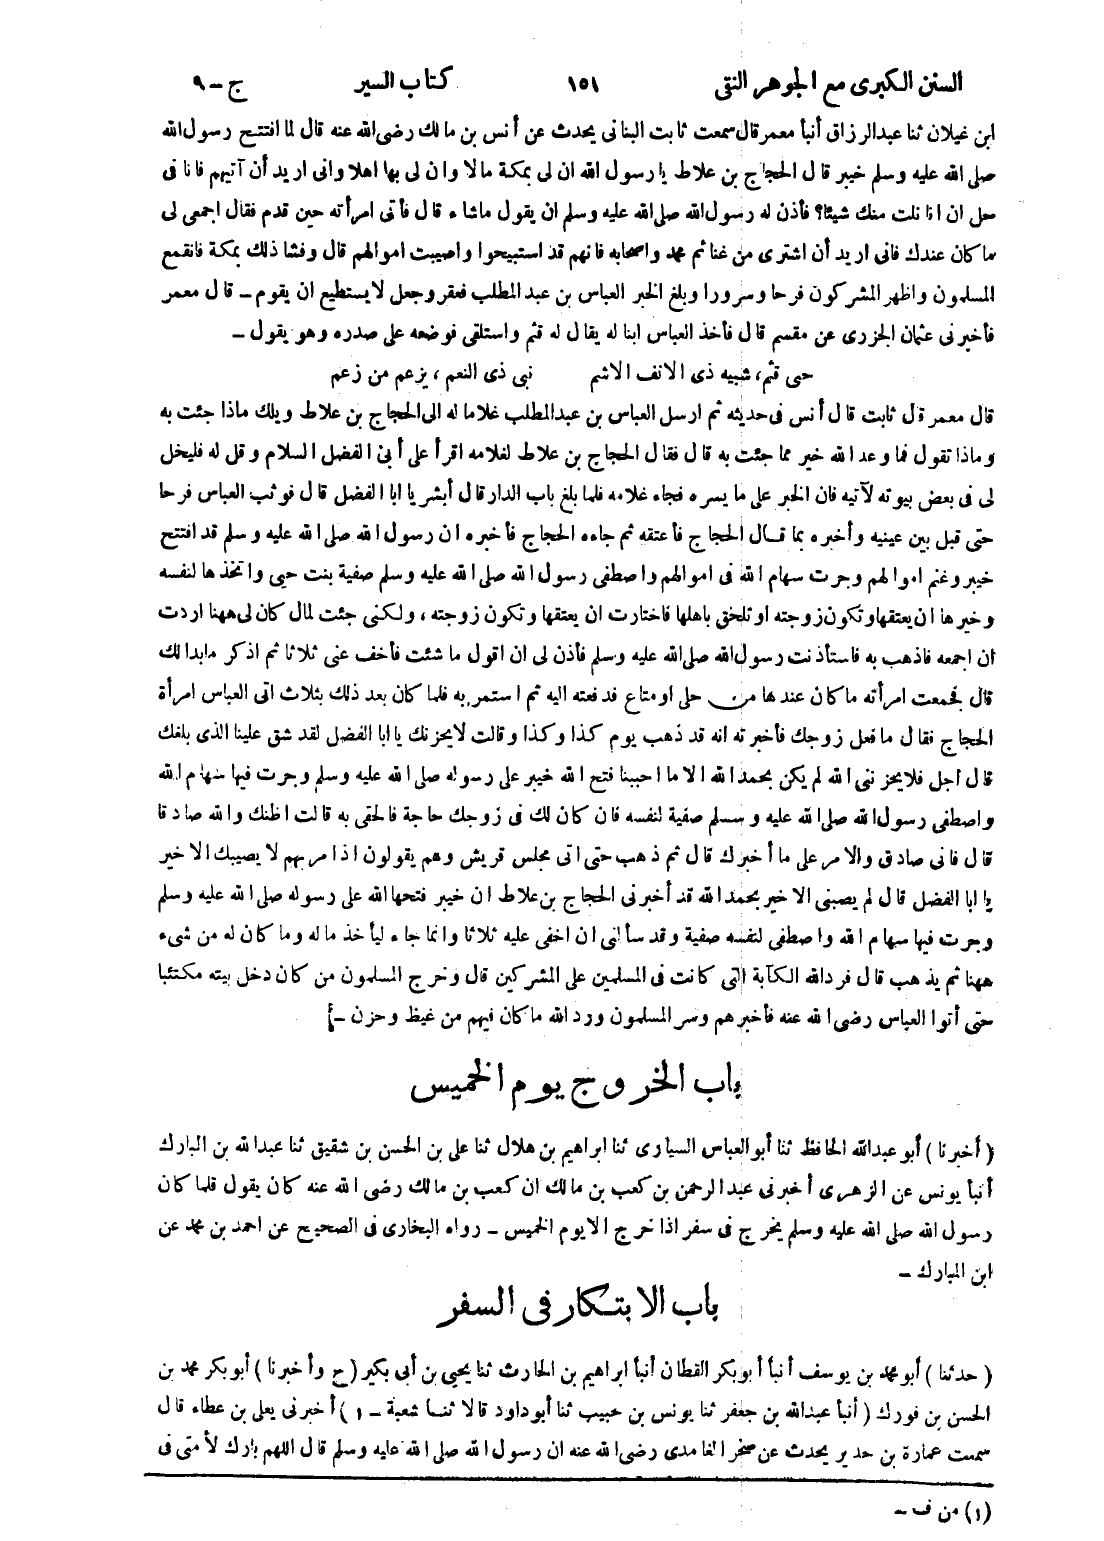 السنن الكبرى مع الجوهر النقى ١٥١ كتاب السير ج – ٩
ابن غيلان ثنا عبدالرزاق أنبأ معمر قال سمعت ثابت البنانى يحدث عن أنس بن مالك رضى الله عنه قال لما افتتح رسول الله
صلى الله عليه وسلم خيبر قال الحجاج بن علاط يا رسول الله ان لى بمكة مالا وان لى بها اهلا وانى اريد أن آتيهم فانا فى
حل ان انا نلت منك شيئا؟ فأذن له رسول الله صلى الله عليه وسلم ان يقول ماشاء قال فأتى امرأته حين قدم فقال اجمعى لى
ما كان عندك فانى اريد أن اشترى من غنائم محمد واصحابه فانهم قد استبيحوا واصيبت اموالهم قال وفشا ذلك بمكة فانقمع
المسلمون واظهر المشركون فرحا وسرورا وبلغ الخبر العباس بن عبد المطلب فعقر وجعل لا يستطيع ان يقوم – قال معمر
فأخبرنى عثمان الجزرى عن مقسم قال فأخذ العباس ابنا له يقال له قثم واستلقى فوضعه على صدره وهو يقول –
حى قثم، شبيه ذى الانف الاشم نبى ذى النعم، يزعم من زعم
قال معمر قال ثابت قال أنس فى حديثه ثم ارسل العباس بن عبدالمطلب غلاما له الى الحجاج بن علاط ويلك ماذا جئت به
وماذا تقول فما وعد الله خير مما جئت به قال فقال الحجاج بن علاط لغلامه اقرأ على أبى الفضل السلام وقل له فليخل
لى فى بعض بيوته لآتيه فان الخبر على ما يسره فجاء غلامه فلما بلغ باب الدار قال أبشر يا ابا الفضل قال فوثب العباس فرحا
حتى قبل بين عينيه وأخبره بما قال الحجاج فأعتقه ثم جاءه الحجاج فأخبره ان رسول الله صلى الله عليه وسلم قد افتتح
خيبر وغنم اموالهم وجرت سهام الله فى اموالهم واصطفى رسول الله صلى الله عليه وسلم صفية بنت حيى واتخذها لنفسه
وخيرها ان يعتقها وتكون زوجته او تلحق باهلها فاختارت ان يعتقها وتكون زوجته، ولكنى جئت لمال كان لى ههنا اردت
ان اجمعه فاذهب به فاستأذنت رسول الله صلى الله عليه وسلم فأذن لى ان اقول ما شئت فأخف عنى ثلاثا ثم اذكر مابدا لك
قال فجمعت امرأته ما كان عندها من حلى او متاع فدفعته اليه ثم استمر به فلما كان بعد ذلك بثلاث اتى العباس امرأة
الحجاج فقال ما فعل زوجك فأخبرته انه قد ذهب يوم كذا وكذا وقالت لا يحزنك يا ابا الفضل لقد شق علينا الذى بلغك
قال اجل فلا يحزننى الله لم يكن بحمد الله الا ما احببنا فتح الله خيبر على رسوله صلى الله عليه وسلم وجرت فيها سهام الله
واصطفى رسول الله صلى الله عليه وسلم صفية لنفسه فان كان لك فى زوجك حاجة فالحقى به قالت اظنك والله صادقا
قال فانى صادق والامر على ما أخبرك قال ثم ذهب حتى اتى مجلس قريش وهم يقولون اذا مر بهم لا يصيبك الا خير
يا ابا الفضل قال لم يصبنى الا خير بحمد الله قد أخبرنى الحجاج بن علاط ان خيبر فتحها الله على رسوله صلى الله عليه وسلم
وجرت فيها سهام الله واصطفى لنفسه صفية وقد سألنى ان اخفى عليه ثلاثا وانما جاء ليأخذ ماله وما كان له من شىء
ههنا ثم يذهب قال فرد الله الكآبة التى كانت فى المسلمين على المشركين قال وخرج المسلمون من كان دخل بيته مكتئبا
حتى أتوا العباس رضى الله عنه فأخبرهم وسر المسلمون ورد الله ما كان فيهم من غيظ وحزن –]
باب الخروج يوم الخميس
(أخبرنا) أبو عبدالله الحافظ ثنا أبو العباس السيارى ثنا ابراهيم بن هلال ثنا على بن الحسن بن شقيق ثنا عبدالله بن المبارك
أنبأ يونس عن الزهرى أخبرنى عبد الرحمن بن كعب بن مالك ان كعب بن مالك رضى الله عنه كان يقول قلما كان
رسول الله صلى الله عليه وسلم يخرج فى سفر اذا خرج الا يوم الخميس – رواه البخارى فى الصحيح عن احمد بن محمد عن
ابن المبارك –
باب الابتكار فى السفر
(حدثنا) أبو محمد بن يوسف أنبأ أبو بكر القطان أنبأ ابراهيم بن الحارث ثنا يحيى بن أبى بكير (ح وأخبرنا) أبو بكر محمد بن
الحسن بن فورك (أنبأ عبدالله بن جعفر ثنا يونس بن حبيب ثنا أبو داود قالا ثنا شعبة – ١) أخبرنى يعلى بن عطاء قال
سمعت عمارة بن حدير يحدث عن صخر الغامدى رضى الله عنه ان رسول الله صلى الله عليه وسلم قال اللهم بارك لأمتى فى
(١) من ف –